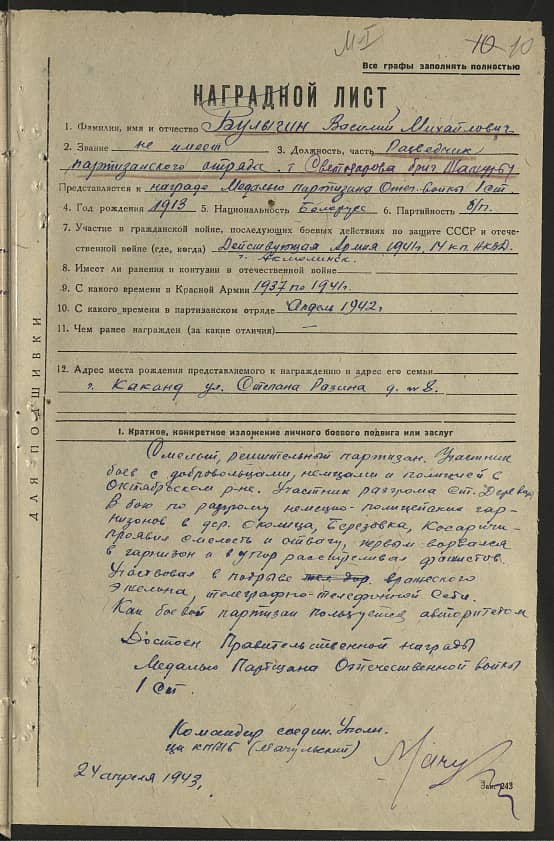 М-I
10 10
Все графы заполнять полностью
НАГРАДНОЙ ЛИСТ
1. Фамилия, имя и отчество Булыгин Василий Михайлович
2. Звание не имеет 3. Должность, часть Разведчик
партизанского отряда т. Светозарова бриг
Представляется к награде Медалью партизана Отеч. войны I ст.
4. Год рождения 1913 5. Национальность Белорус 6. Партийность б/п.
7. Участие в гражданской войне, последующих боевых действиях по защите СССР и отече-
ственной войне (где, когда) Действующая Армия 1941г. 14 кп. НКВД
г. Акмолинск.
8. Имеет ли ранения и контузии в отечественной войне
9. С какого времени в Красной Армии 1937 по 1941г.
10. С какого времени в партизанском отряде Апрель 1942г
11. Чем ранее награжден (за какие отличия) —
12. Адрес места рождения представляемого к награждению и адрес его семьи
г. Каканд ул. Степана Разина д. № 8.
ДЛЯ ПОДШИВКИ
I. Краткое, конкретное изложение личного боевого подвига или заслуг
Смелый, решительный партизан. Участник
боев с добровольцами, немцами и полицией в
Октябрьском р-не. Участник разгрома Ст. Деревцы
В бою по разгрому немецко-полицейских гар-
низонов в дер. Сколица, Березовка, Косаричи
проявил смелость и отвагу, первым ворвался
в гарнизон и в упор расстреливал фашистов.
Участвовал в подрыве жел. дор. вражеского
эшелона, телеграфно-телефонной сети.
Как боевой партизан пользуется авторитетом
Достоен Правительственной награды
Медалью Партизана Отечественной войны
I Ст.
Командир соедин. Уполн.
ЦК КП/б/Б (Мачульский)
24 апреля 1943г.
Зак. 243